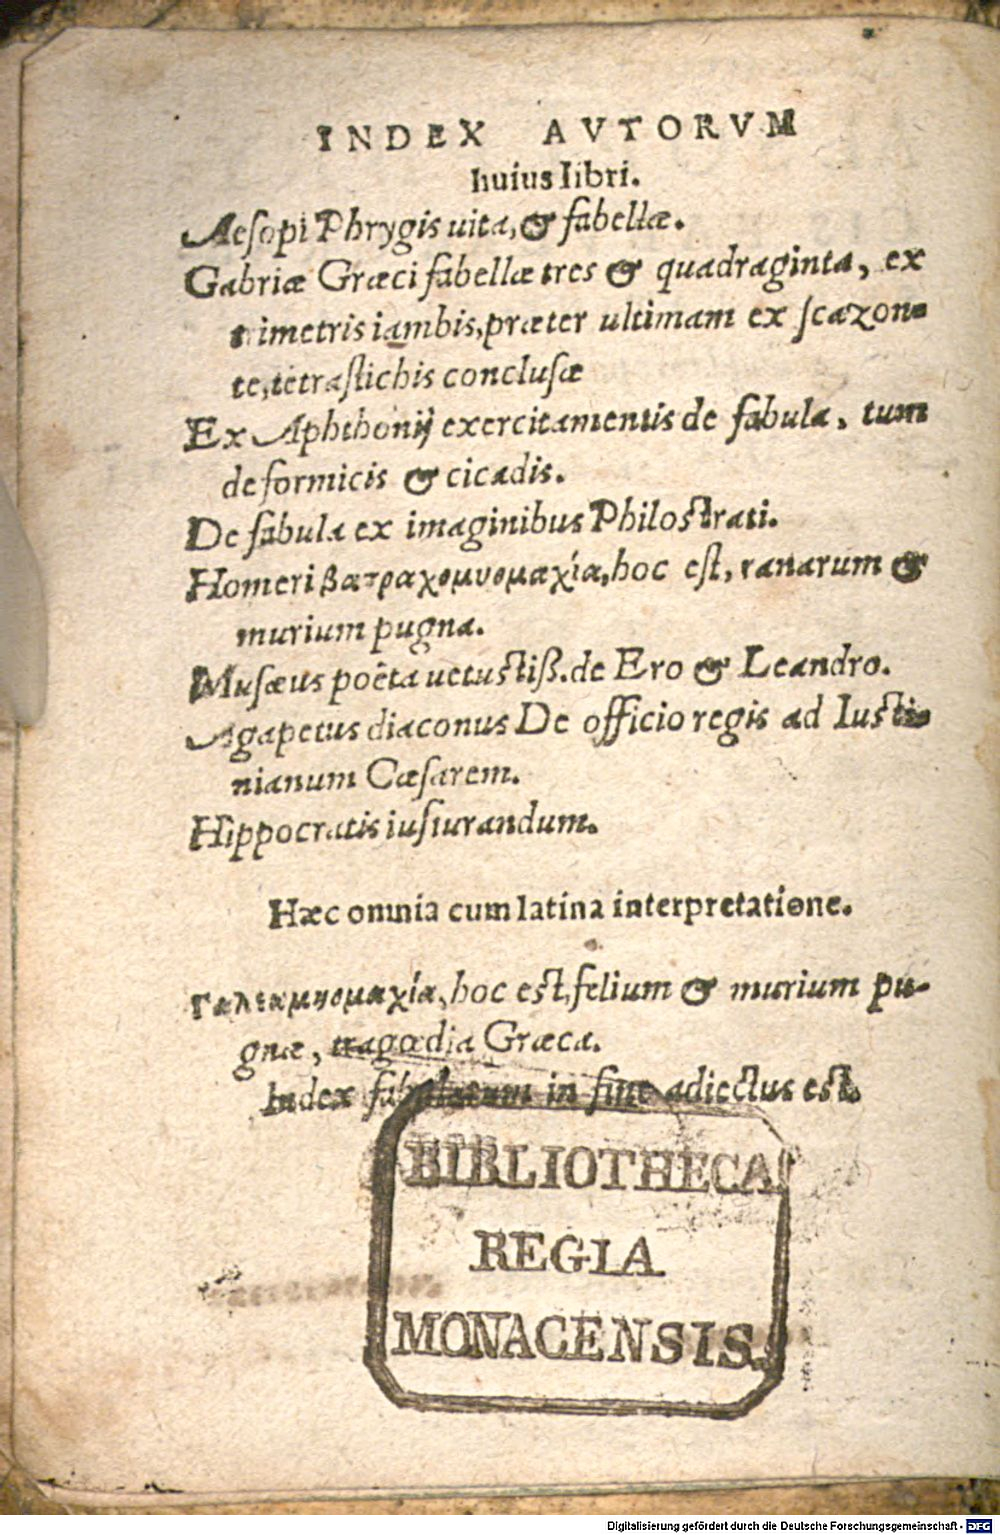 INDEX AVTORVM
huius libri.
Aesopi Phrygis uita, & fabellæ.
Gabriæ Græci fabellæ tres & quadraginta, ex
trimetris iambis, præter ultimam ex ſcazon-
te, tetraſtichis concluſæ
Ex Aphthonij exercitamentis de fabula, tum
de formicis & cicadis.
De fabula ex imaginibus Philoſtrati.
Homeri βατραχομυομαχία, hoc eſt, ranarum &
murium pugna.
Muſæus poëta uetuſtiß. de Ero & Leandro.
Agapetus diaconus De officio regis ad Iuſti-
nianum Cæſarem.
Hippocratis iuſiurandum.
Hæc omnia cum latina interpretatione.
Γαλεωμυομαχία, hoc eſt, felium & murium pu-
gnæ, tragœdia Græca.
Index fabularum in fine adiectus eſt.
BIBLIOTHECA
REGIA
MONACENSIS.
Digitalisierung gefördert durch die Deutsche Forschungsgemeinschaft - DFG